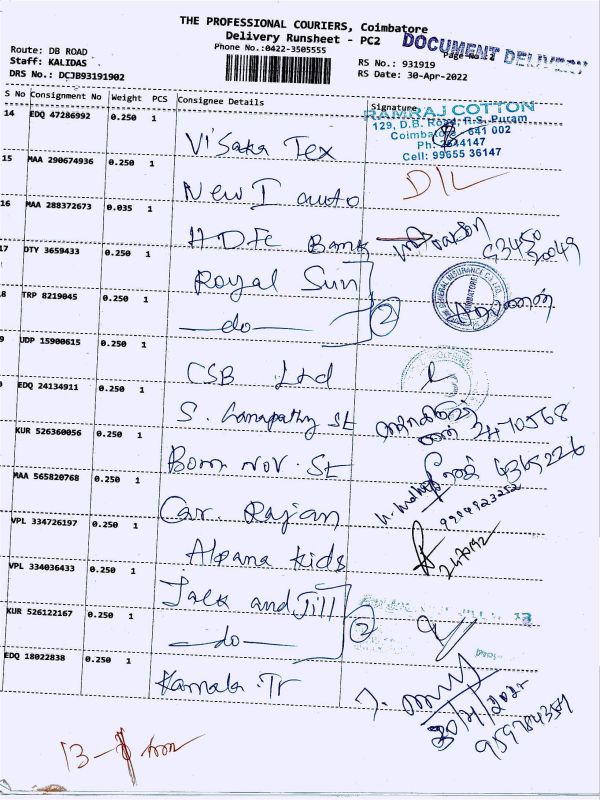 THE PROFESSIONAL COURIERS, Coimbatore
Delivery Runsheet - PC2
Phone No.:0422-3505555
DOCUMENT DELIVERY
Page No.: 2
Route: DB ROAD
Staff: KALIDAS
DRS No.: DCJB93191902
RS No.: 931919
RS Date: 30-Apr-2022
S No Consignment No Weight PCS Consignee Details Signature
RAMRAJ COTTON
129, D.B. Road, R.S. Puram
Coimbatore - 641 002
Cell: 99655 36147
14 EDQ 47286992 0.250 1 Visaka Tex
15 MAA 290674936 0.250 1 New I auto D/L
16 MAA 288372673 0.035 1 HDFC Bank
17 DTY 3659433 0.250 1 Royal Sun
8 TRP 8219045 0.250 1 —do— 2
9 UDP 15900615 0.250 1 CSB Ltd
EDQ 24134911 0.250 1 S. Ganapathy St 2470568
KUR 526360056 0.250 1 Born Nov. St
MAA 565820768 0.250 1 Car. Rajan
VPL 334726197 0.250 1 Alpana Kids
VPL 334036433 0.250 1 Jack and Jill
KUR 526122167 0.250 1 —do— 2
EDQ 18022838 0.250 1 Kamala Tr